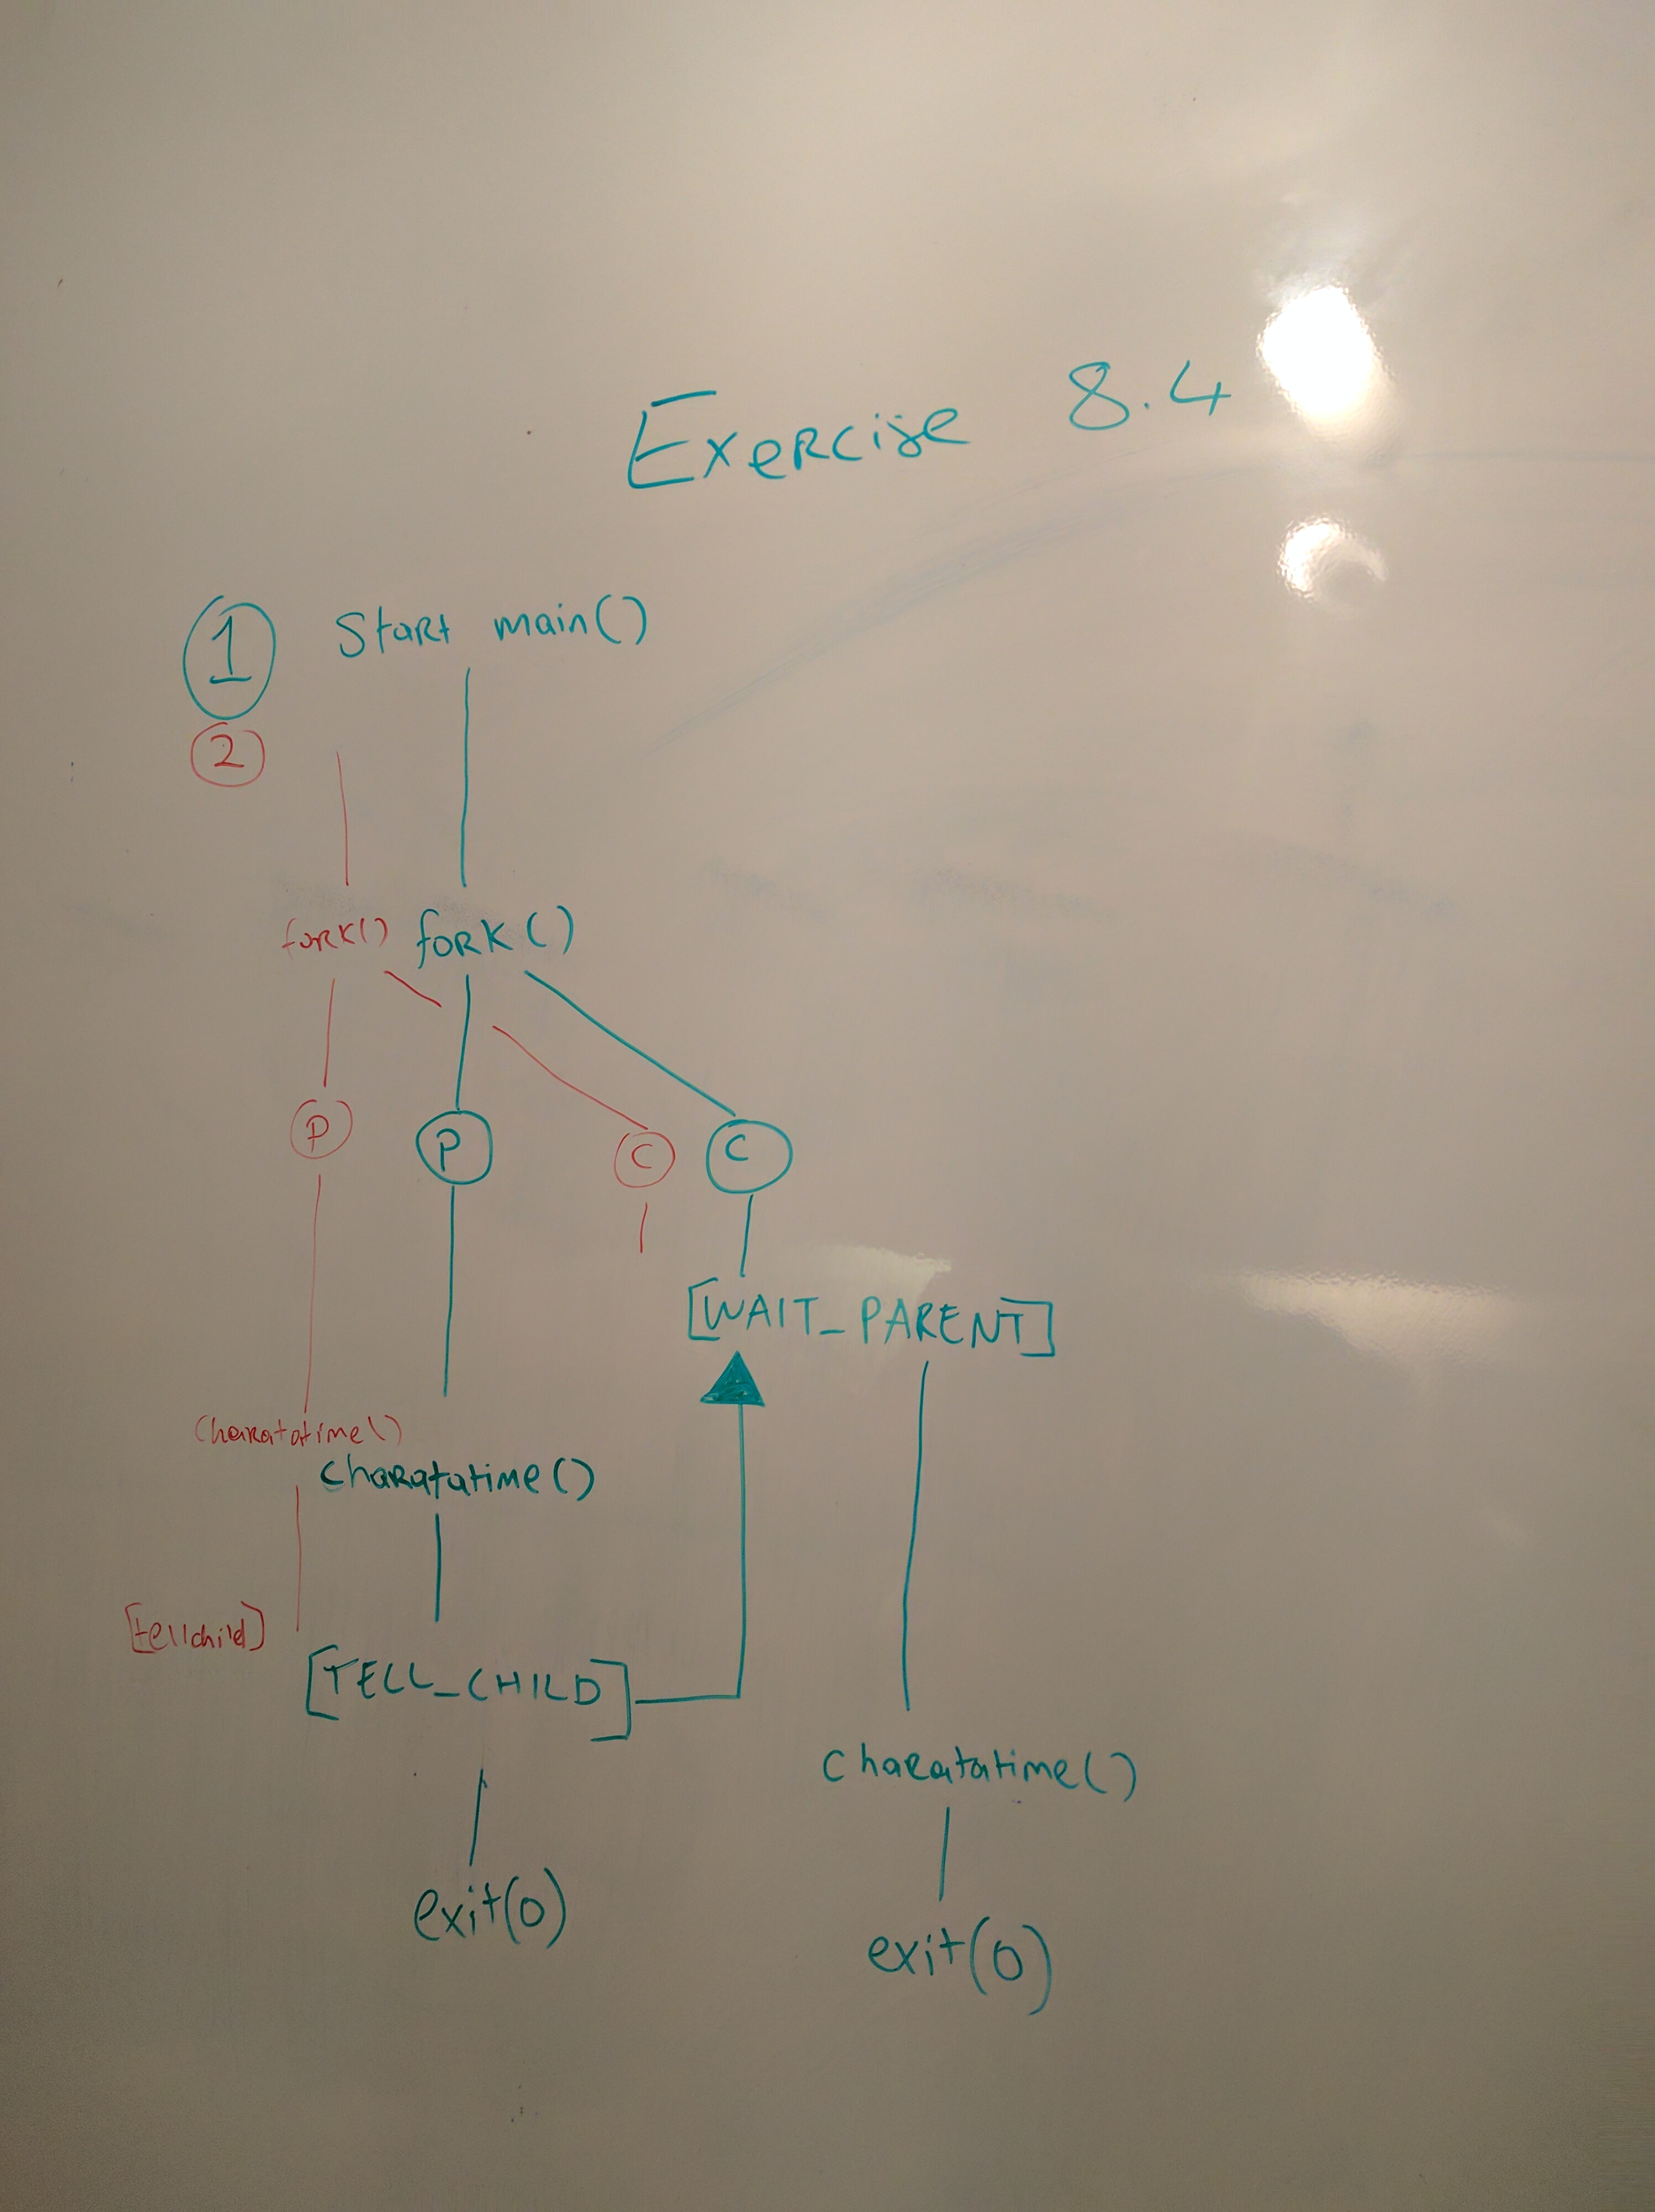 Exercise 8.4
1 Start main()
2
fork() fork()
P P C C
[WAIT_PARENT]
charatatime()
charatatime()
[tellchild]
[TELL_CHILD]
charatatime()
exit(0)
exit(0)